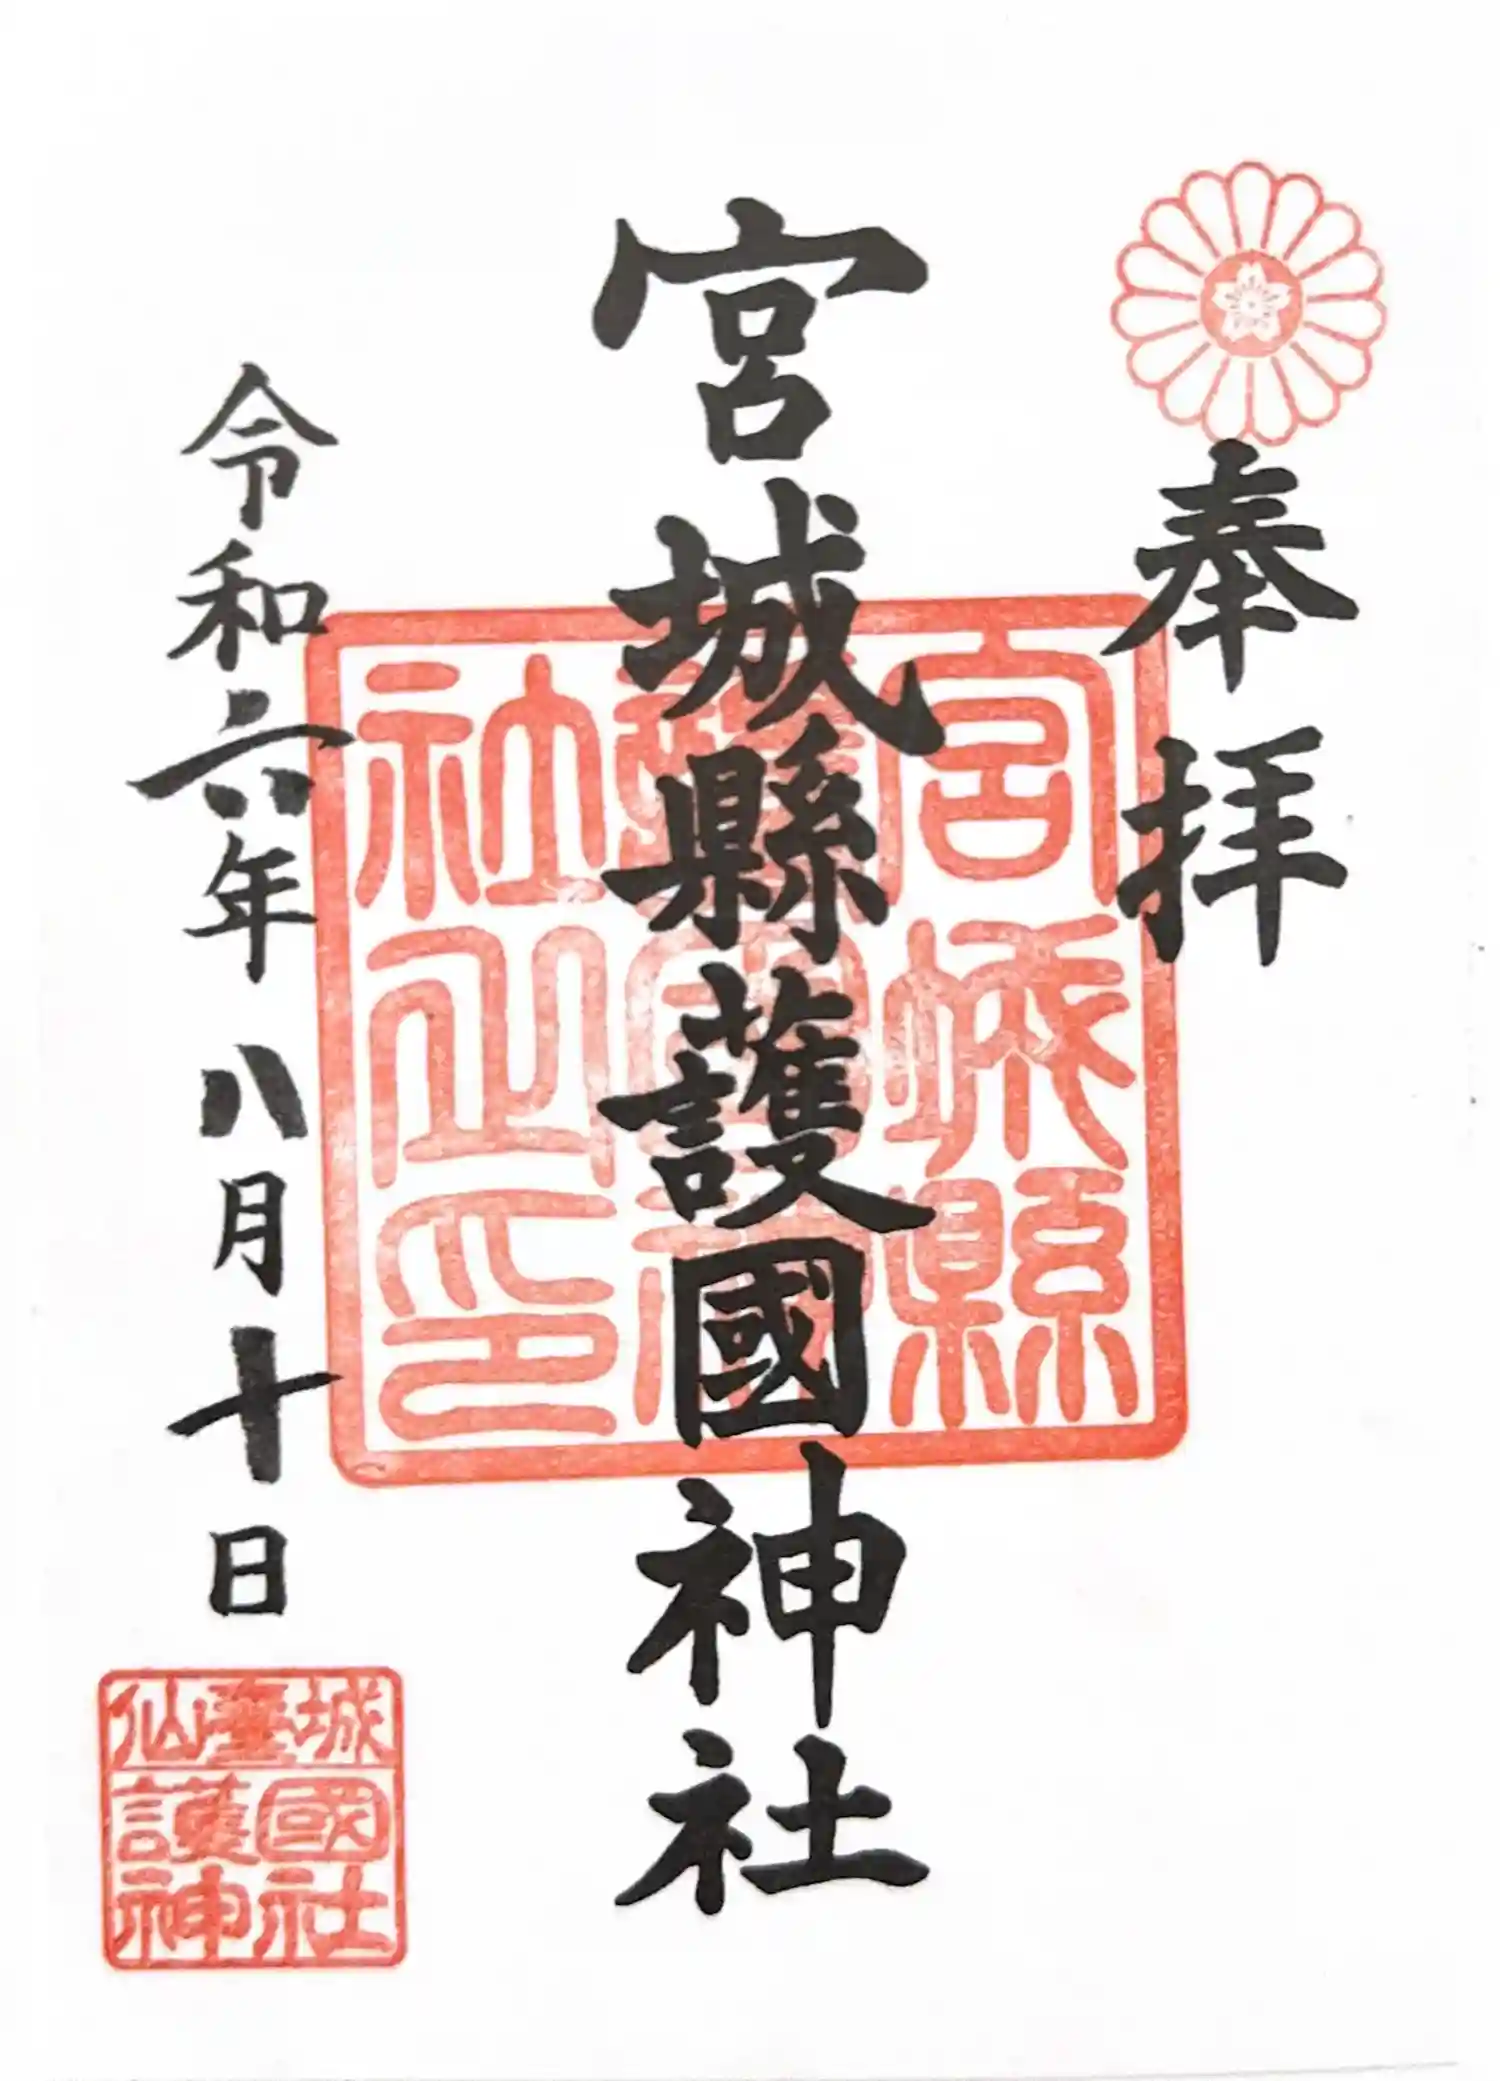 奉拝
宮城縣護國神社
宮城縣
護國神
社之印
令和六年八月十日
仙臺城
護國
神社